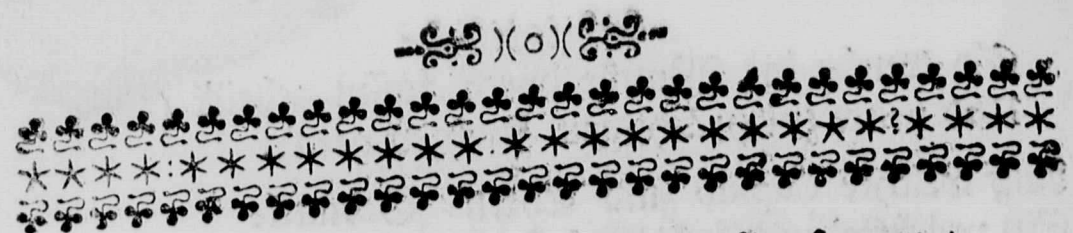 )( o )(
* * * * : * * * * * * * * . * * * * * * * * * * ? * * * *